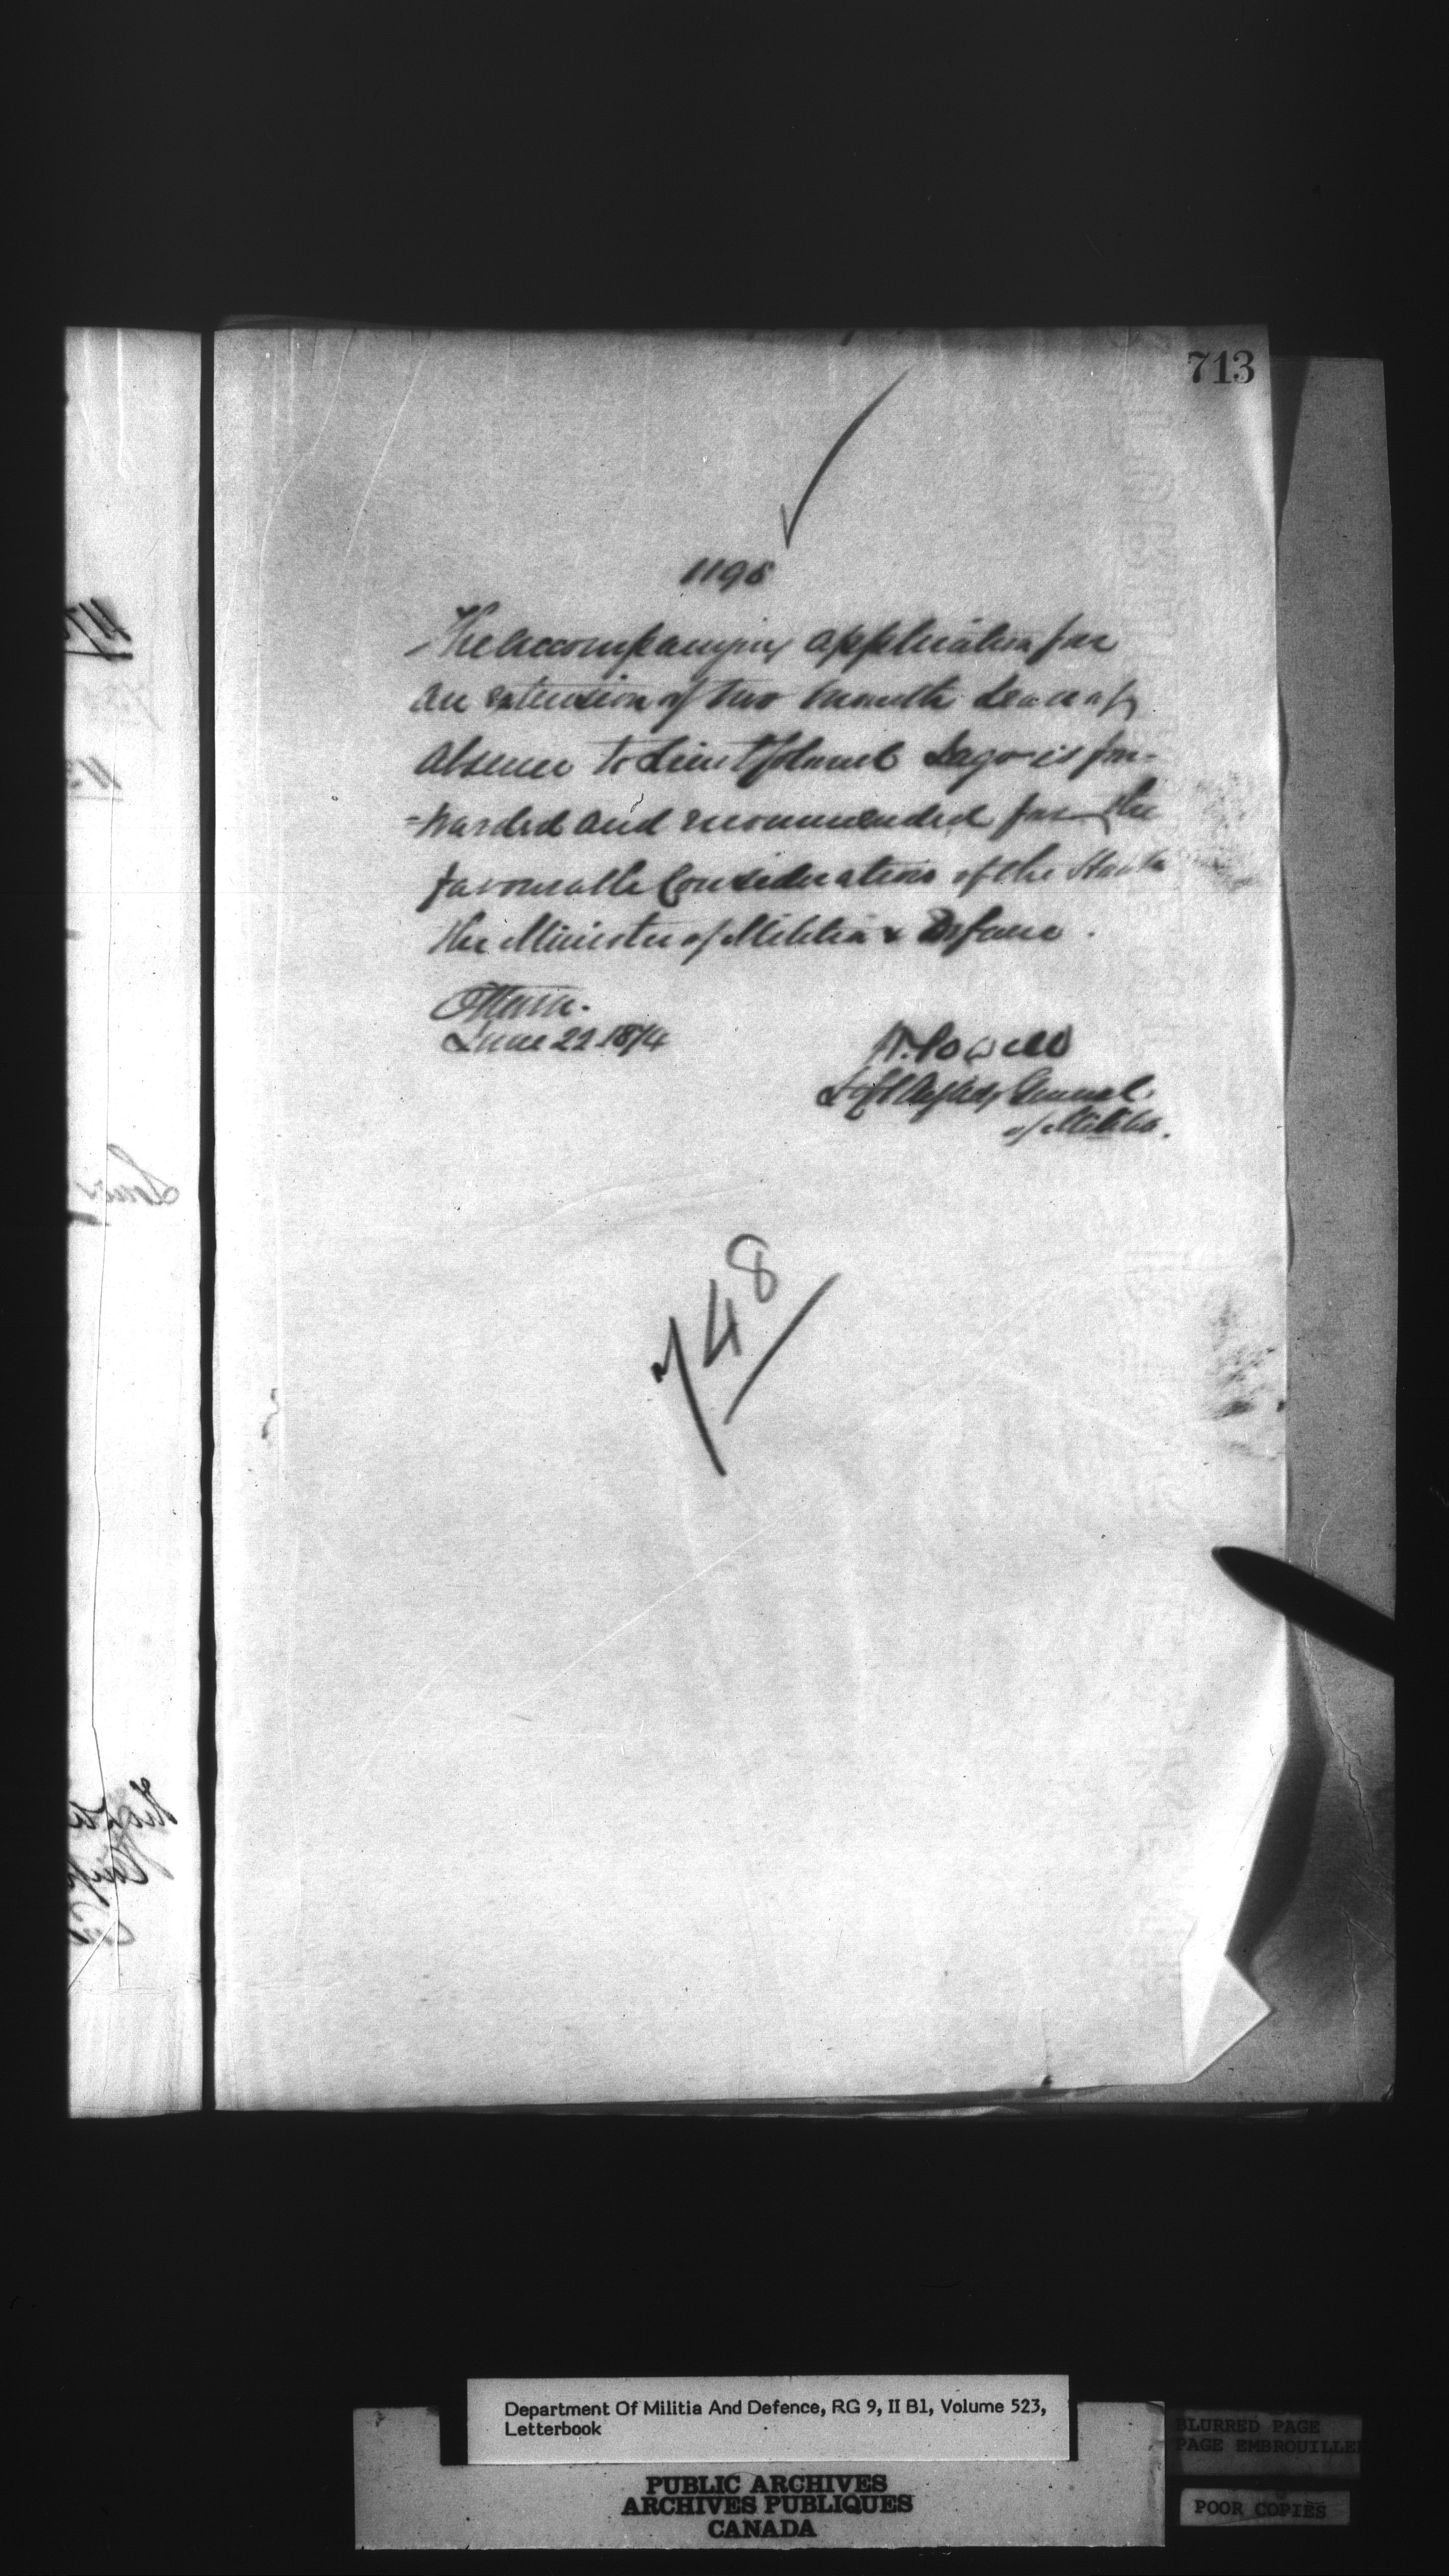 713
1198
The accompanying application for
an extension of two months leave of
absence to Lieut Colonel is for-
=warded and recommended for the
favourable Consideration of the Honble
the Minister of Militia & Defence.
Ottawa.
June 22 1874
W. Powell
General
of Militia.
748
Department Of Militia And Defence, RG 9, II B1, Volume 523,
Letterbook
PUBLIC ARCHIVES
ARCHIVES PUBLIQUES
CANADA
BLURRED PAGE
PAGE EMBROUILLE
POOR COPIES